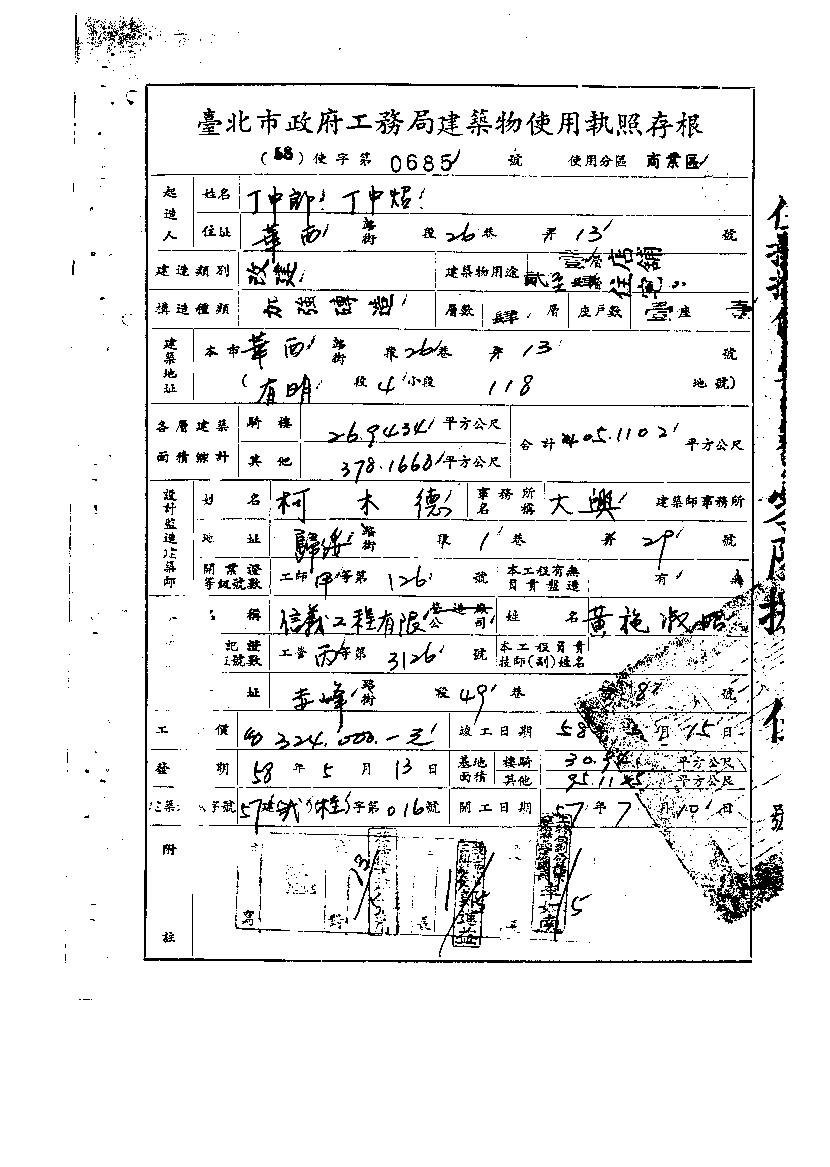 臺北市政府工務局建築物使用執照存根
(58)使字第 0685 號 使用分區 商業區
起造人 姓名 丁中郎 丁中炤
住址 華西 路街 段 26 巷 弄 13 號
建造類別 改建 建築物用途 壹層店舖 貳至肆層住宅
構造種類 加強磚造 層數 肆 層 座戶數 壹座 壹
建築地址 本市 華西 路街 段 26 巷 弄 13 號
(有明 段 4 小段 118 地號)
各層建築面積總計 騎樓 26.9434 平方公尺 合計 405.1102 平方公尺
其他 378.1668 平方公尺
設計監造建築師 姓名 柯木德 事務所名稱 大興 建築師事務所
地址 歸綏 路街 段 1 巷 弄 29 號
開業證等級號數 工師 甲 等第 126 號 本工程有無負責監造 有 無
名稱 信義工程有限公司 營造廠 姓名 黃施淑
記證號數 工營 丙 等第 3126 號 本工程負責技師(副)姓名
址 赤峰 路街 段 49 巷 8 號
工 價 324,000.-元 竣工日期 58 月 15 日
發 期 58 年 5 月 13 日 基地面積 樓騎 30.94 平方公尺
其他 95.1145 平方公尺
築 字號 57 建 (桂)字第 016 號 開工日期 57 年 7 月 10 日
附註